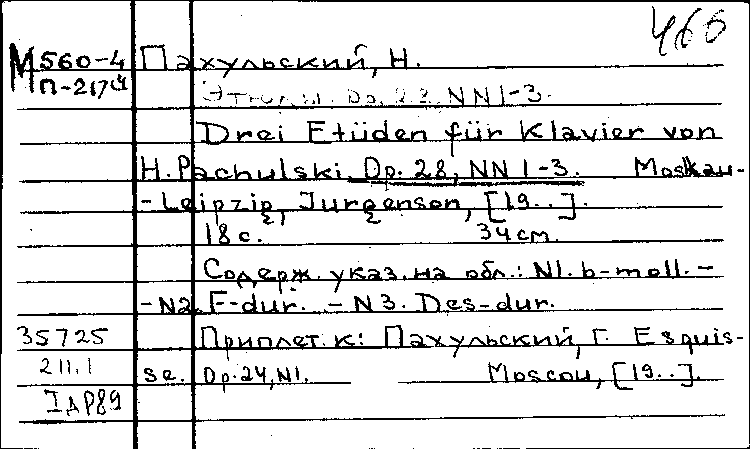 466
М560-4 Пахульский, Н.
П-217й
Этюды. Op. 28. NN 1-3.
Drei Etüden für Klavier von
H. Pachulski. Op. 28, NN 1-3. Moskau-
-Leipzig, Jurgenson, [19..].
18 с. 34 см.
Содерж. указ. на обл.: N1. b-moll. -
-N2. F-dur. - N3. Des-dur.
35725 Приплет. к: Пахульский, Г. Esquis-
211.1 se. Op. 24, N1. Moscou, [19..].